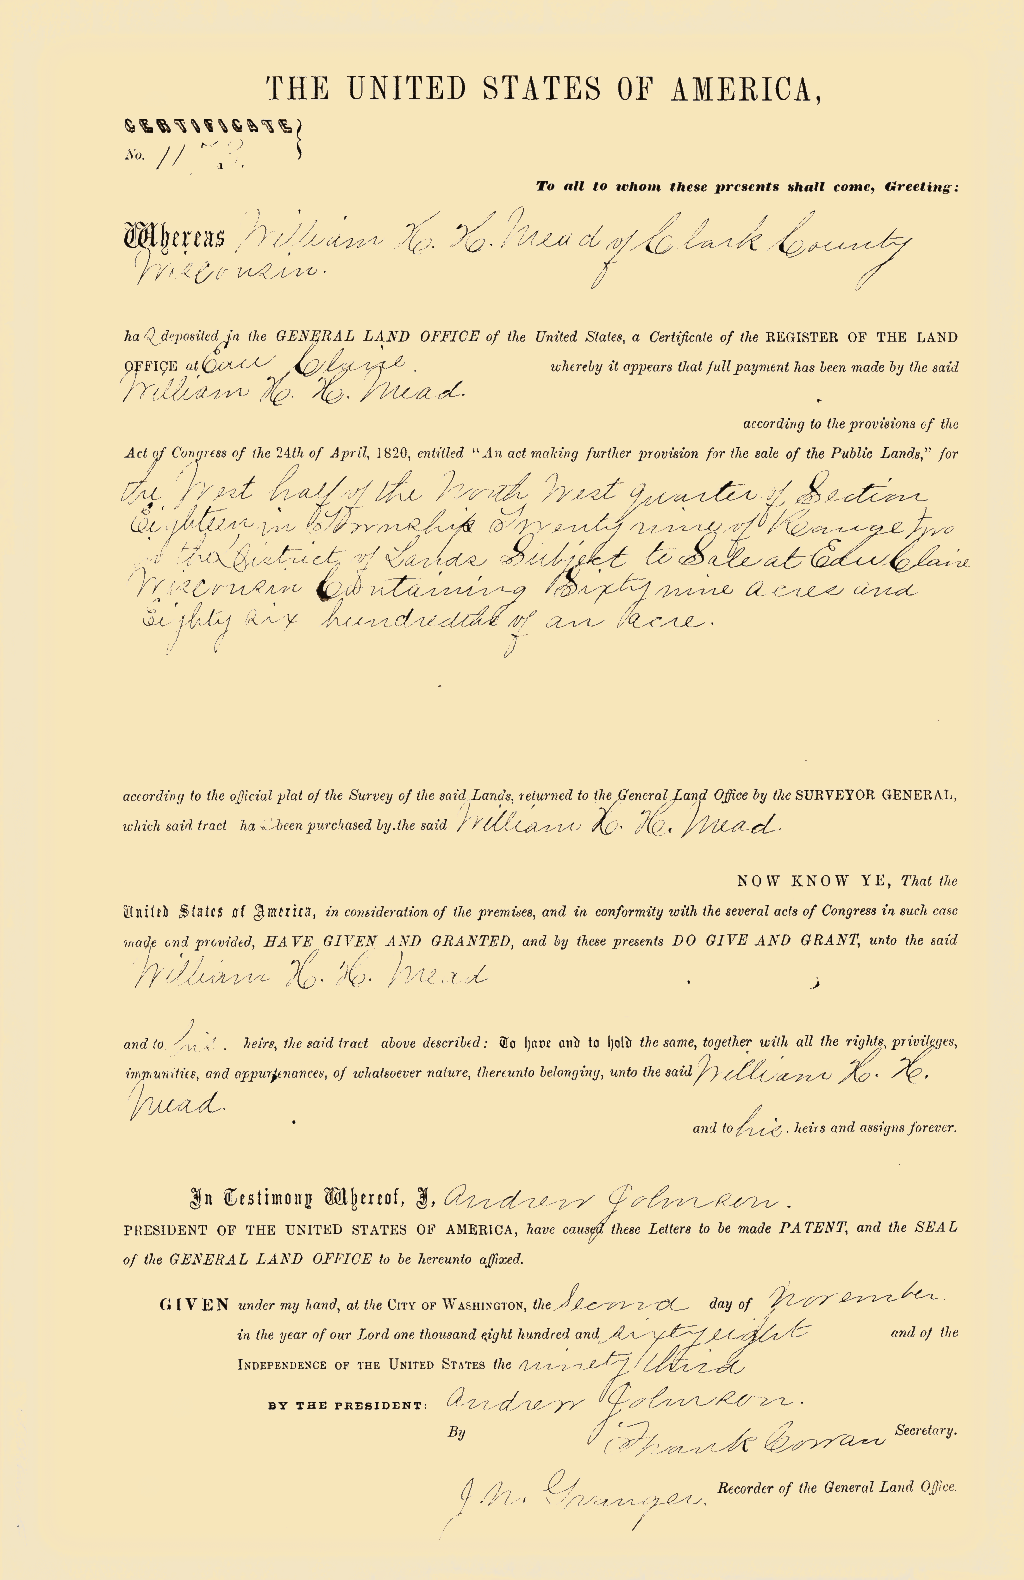 THE UNITED STATES OF AMERICA,
CERTIFICATE
No. 11
To all to whom these presents shall come, Greeting:
Whereas William H. H. Mead of Clark County
Wisconsin.
has deposited in the GENERAL LAND OFFICE of the United States, a Certificate of the REGISTER OF THE LAND
OFFICE at Eau Claire. whereby it appears that full payment has been made by the said
William H. H. Mead.
according to the provisions of the
Act of Congress of the 24th of April, 1820, entitled "An act making further provision for the sale of the Public Lands," for
the West half of the North West quarter of Section
Eighteen in Township Twenty nine of Range Two
in the District of Lands Subject to Sale at Eau Claire
Wisconsin Containing Sixty nine acres and
Eighty six hundredths of an acre.
according to the official plat of the Survey of the said Lands, returned to the General Land Office by the SURVEYOR GENERAL,
which said tract has been purchased by the said William H. H. Mead.
NOW KNOW YE, That the
United States of America, in consideration of the premises, and in conformity with the several acts of Congress in such case
made and provided, HAVE GIVEN AND GRANTED, and by these presents DO GIVE AND GRANT, unto the said
William H. H. Mead
and to his heirs, the said tract above described: To have and to hold the same, together with all the rights, privileges,
immunities, and appurtenances, of whatsoever nature, thereunto belonging, unto the said William H. H.
Mead.
and to his heirs and assigns forever.
In Testimony Whereof, I, Andrew Johnson.
PRESIDENT OF THE UNITED STATES OF AMERICA, have caused these Letters to be made PATENT, and the SEAL
of the GENERAL LAND OFFICE to be hereunto affixed.
GIVEN under my hand, at the CITY OF WASHINGTON, the Second day of November.
in the year of our Lord one thousand eight hundred and sixty eight and of the
INDEPENDENCE OF THE UNITED STATES the ninety third
BY THE PRESIDENT: Andrew Johnson.
By Frank Cowan Secretary.
J. N. Granger. Recorder of the General Land Office.